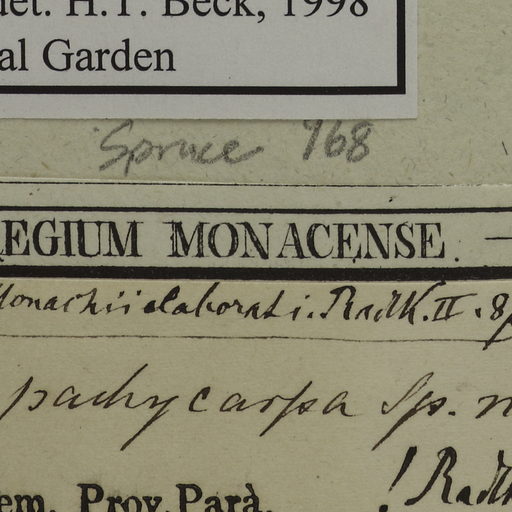 det. H.T. Beck, 1998
al Garden
Spruce 968
REGIUM MONACENSE.
Monachii elaborati. Radlk. II. 8
pachycarpa sp. n
! Radlk
em. Prov. Parà.